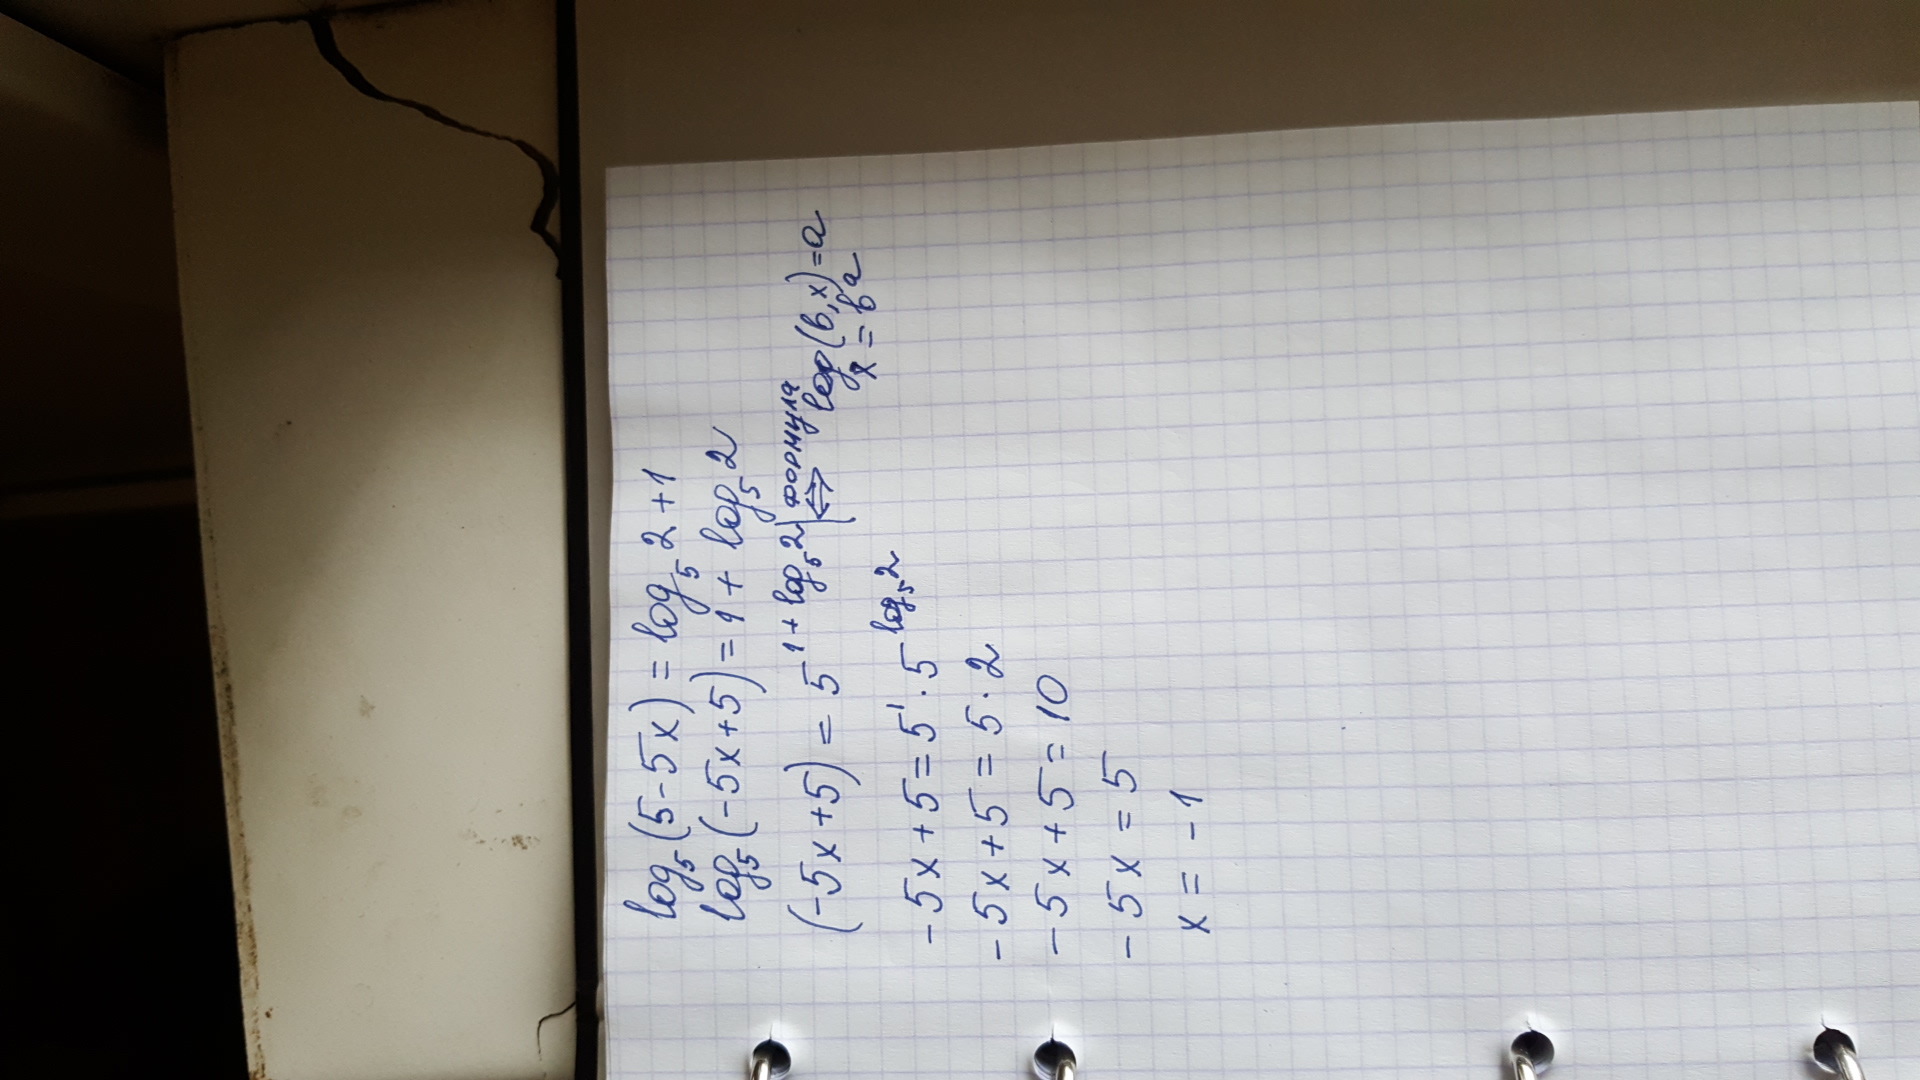 log₅(5-5x)=log₅2+1
log₅(-5x+5)=1+log₅2
(-5x+5)=5^(1+log₅2) | формула
⇔ log(b,x)=a
x=b^a
-5x+5=5¹·5^(log₅2)
-5x+5=5·2
-5x+5=10
-5x=5
x=-1